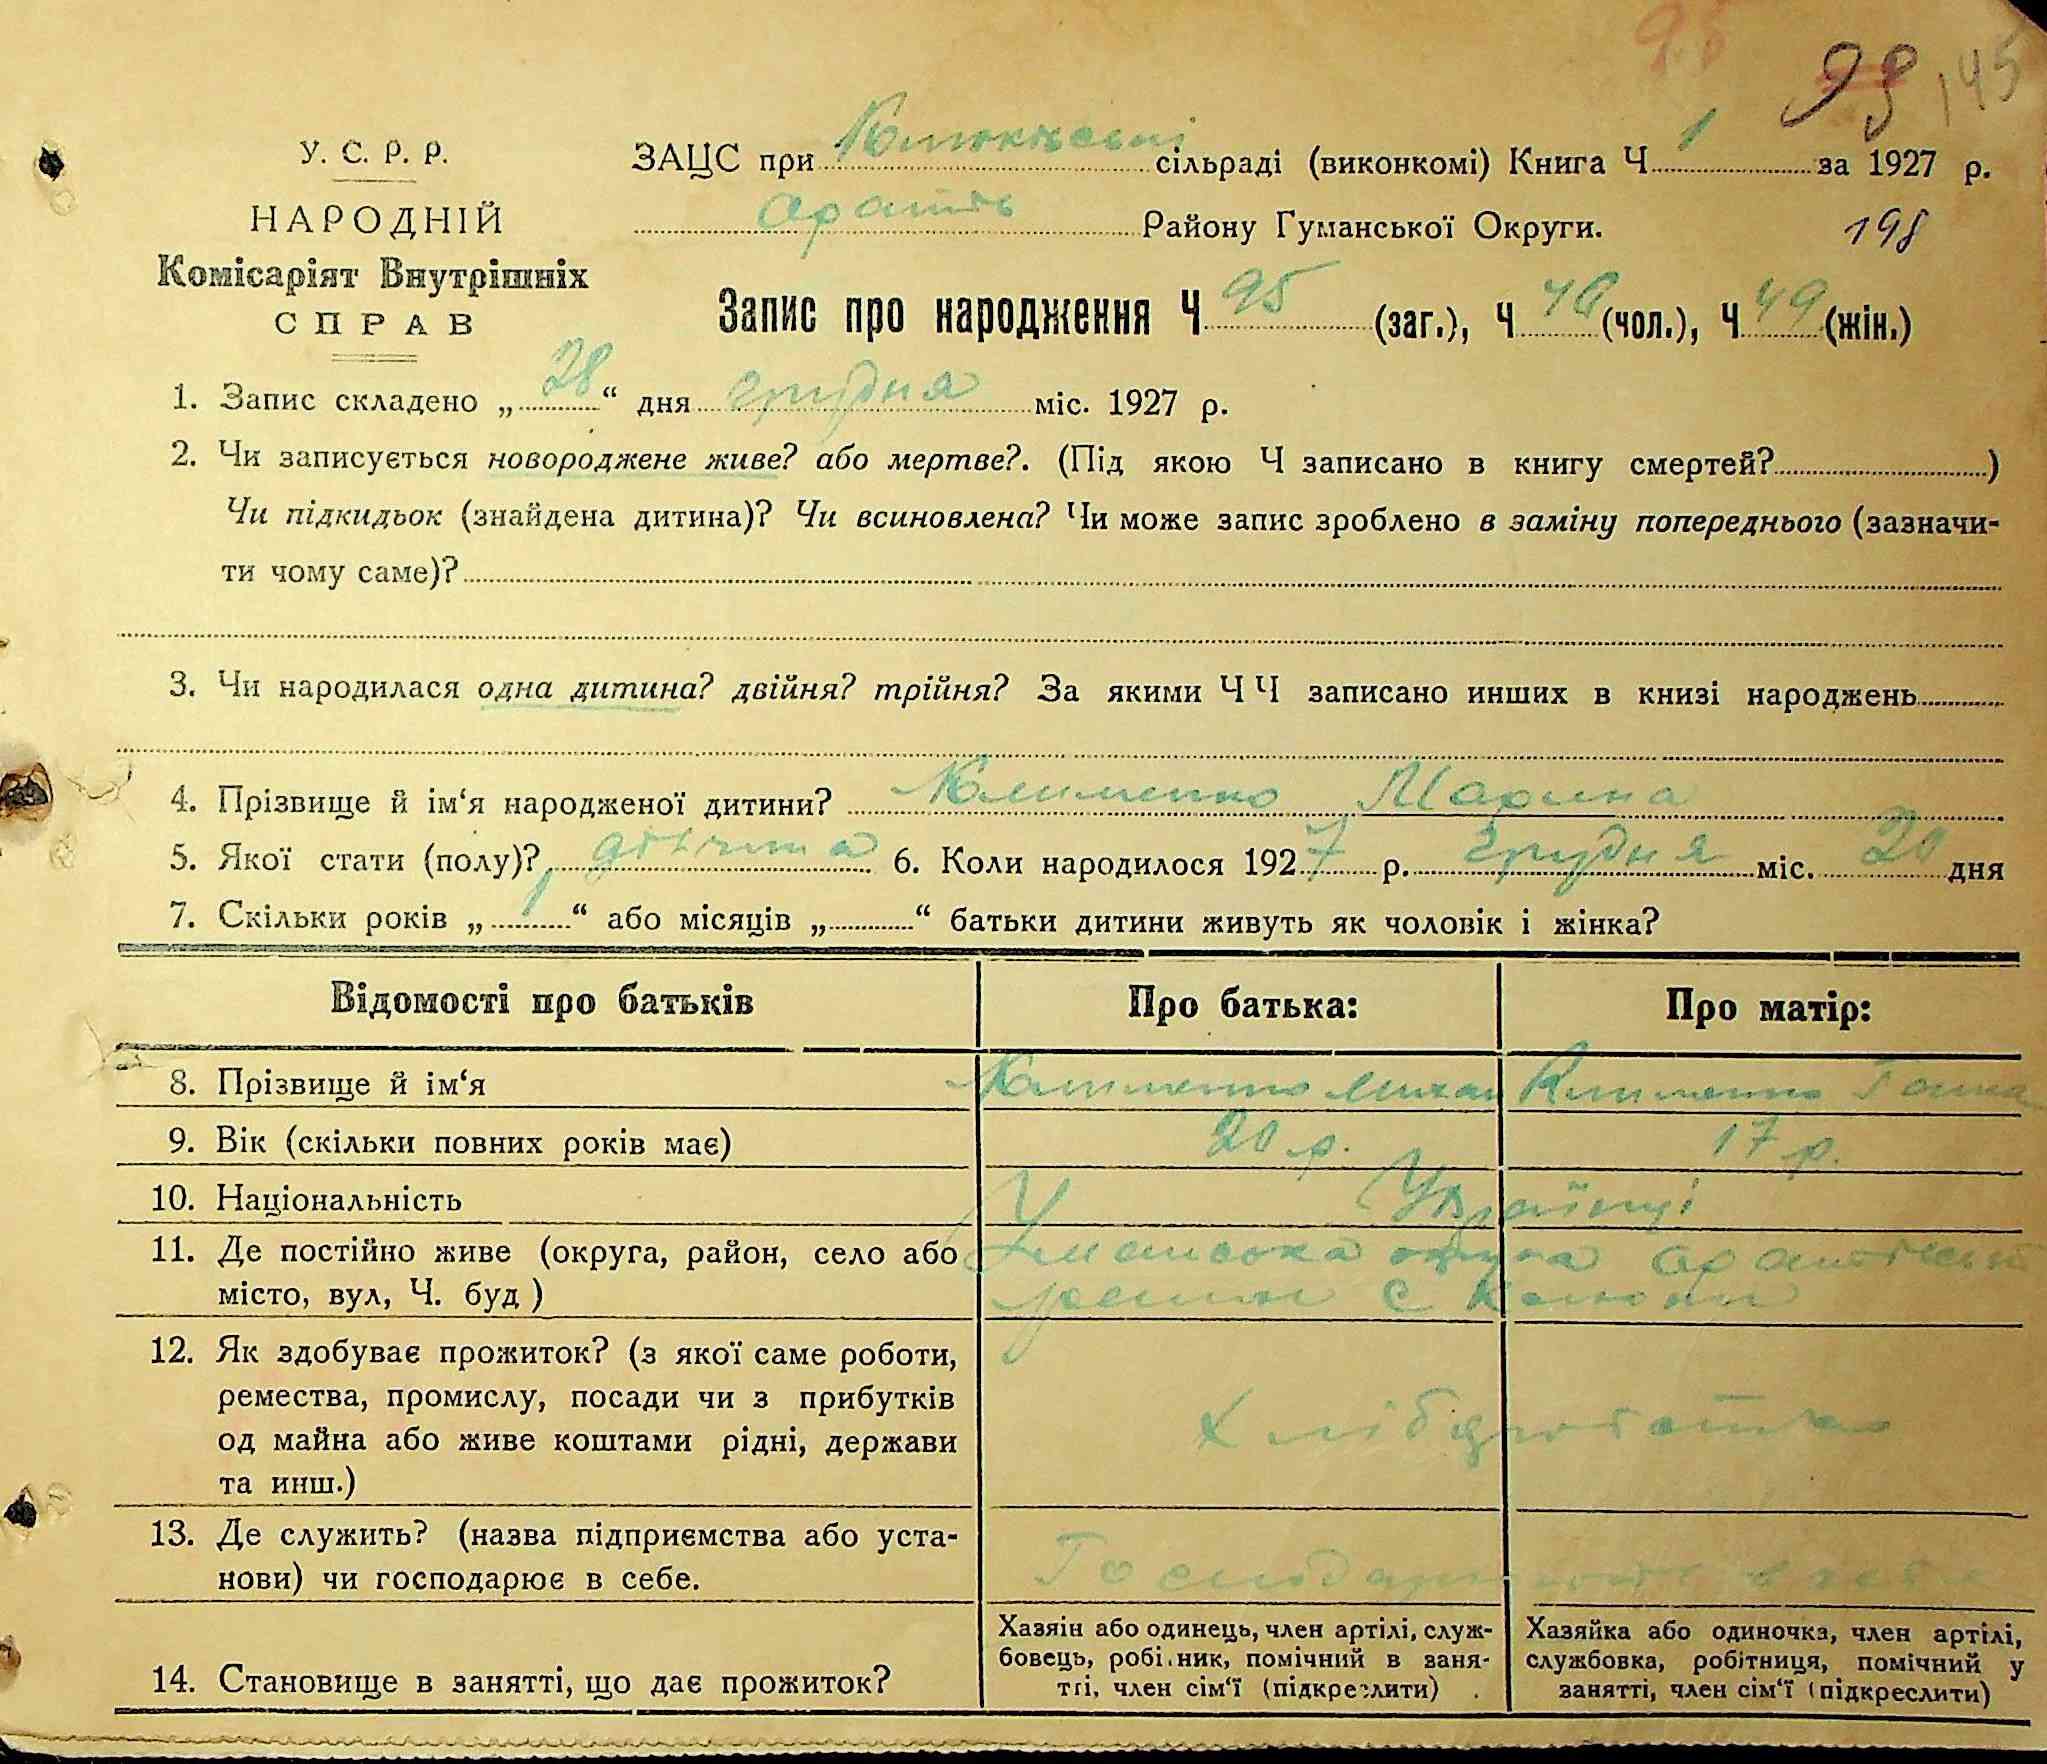 95
98 145
У. С. Р. Р.
ЗАЦС при сільраді (виконкомі) Книга Ч 1 за 1927 р.
НАРОДНІЙ
Району Гуманської Округи.
198
Комісаріят Внутрішніх
СПРАВ
Запис про народження Ч 95 (заг.), Ч 46 (чол.), Ч 49 (жін.)
1. Запис складено „ 28 “ дня грудня міс. 1927 р.
2. Чи записується новороджене живе? або мертве?. (Під якою Ч записано в книгу смертей? )
Чи підкидьок (знайдена дитина)? Чи всиновлена? Чи може запис зроблено в заміну попереднього (зазначи-
ти чому саме)?
3. Чи народилася одна дитина? двійня? трійня? За якими ЧЧ записано инших в книзі народжень
4. Прізвище й ім‘я народженої дитини? Клименко Марина
5. Якої стати (полу)? дівчина 6. Коли народилося 1927 р. грудня міс. 20 дня
7. Скільки років „ 1 “ або місяців „ “ батьки дитини живуть як чоловік і жінка?
Відомості про батьків Про батька: Про матір:
8. Прізвище й ім‘я Клименко Клименко Ганна
9. Вік (скільки повних років має) 20 р. 17 р.
10. Національність Українці
11. Де постійно живе (округа, район, село або Уманська округа
місто, вул, Ч. буд ) район с
12. Як здобуває прожиток? (з якої саме роботи,
ремества, промислу, посади чи з прибутків
од майна або живе коштами рідні, держави
та инш.)
13. Де служить? (назва підприємства або уста-
нови) чи господарює в себе.
14. Становище в занятті, що дає прожиток?
Хазяін або одинець, член артілі, служ-
бовець, робі.ник, помічний в заня-
тті, член сім‘ї (підкреслити)
Хазяйка або одиночка, член артілі,
службовка, робітниця, помічний у
занятті, член сім‘ї (підкреслити)